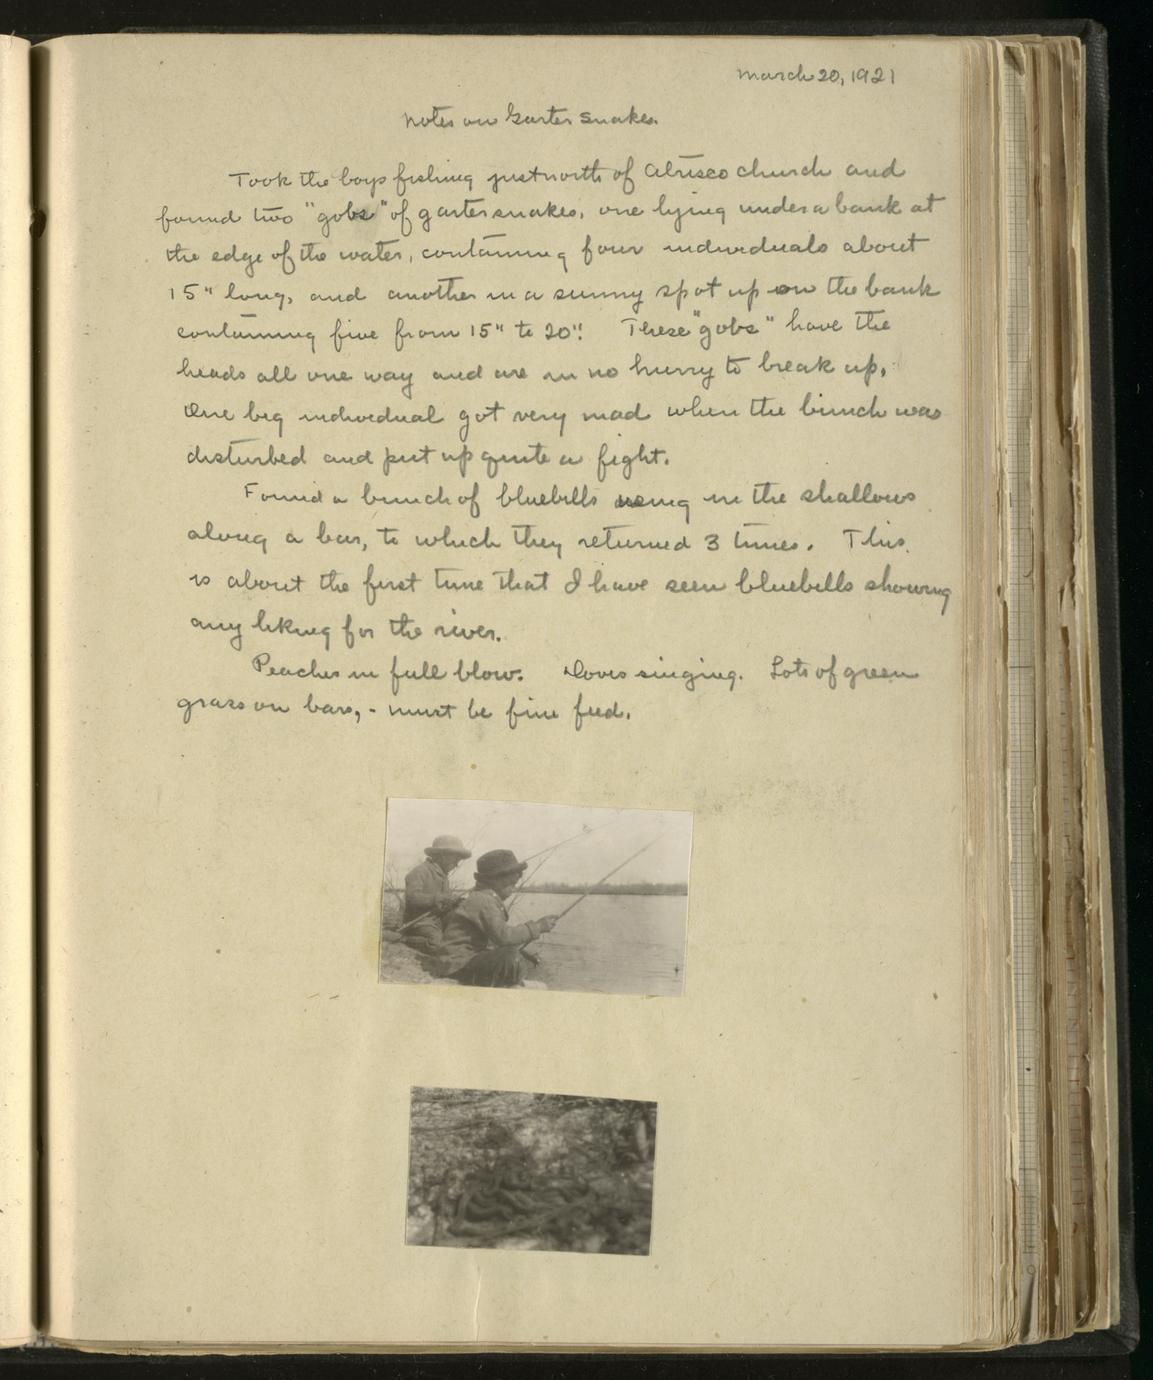 March 20, 1921
Notes on Garter Snakes.
Took the boys fishing just north of Atrisco church and
found two "gobs" of garter snakes, one lying under a bank at
the edge of the water, containing four individuals about
15" long, and another in a sunny spot up on the bank
containing five from 15" to 20". These "gobs" have the
heads all one way and are in no hurry to break up.
One big individual got very mad when the bunch was
disturbed and put up quite a fight.
Found a bunch of bluebills using in the shallows
along a bar, to which they returned 3 times. This
is about the first time that I have seen bluebills showing
any liking for the river.
Peaches in full blow. Doves singing. Lots of green
grass on bars, - must be fine feed.